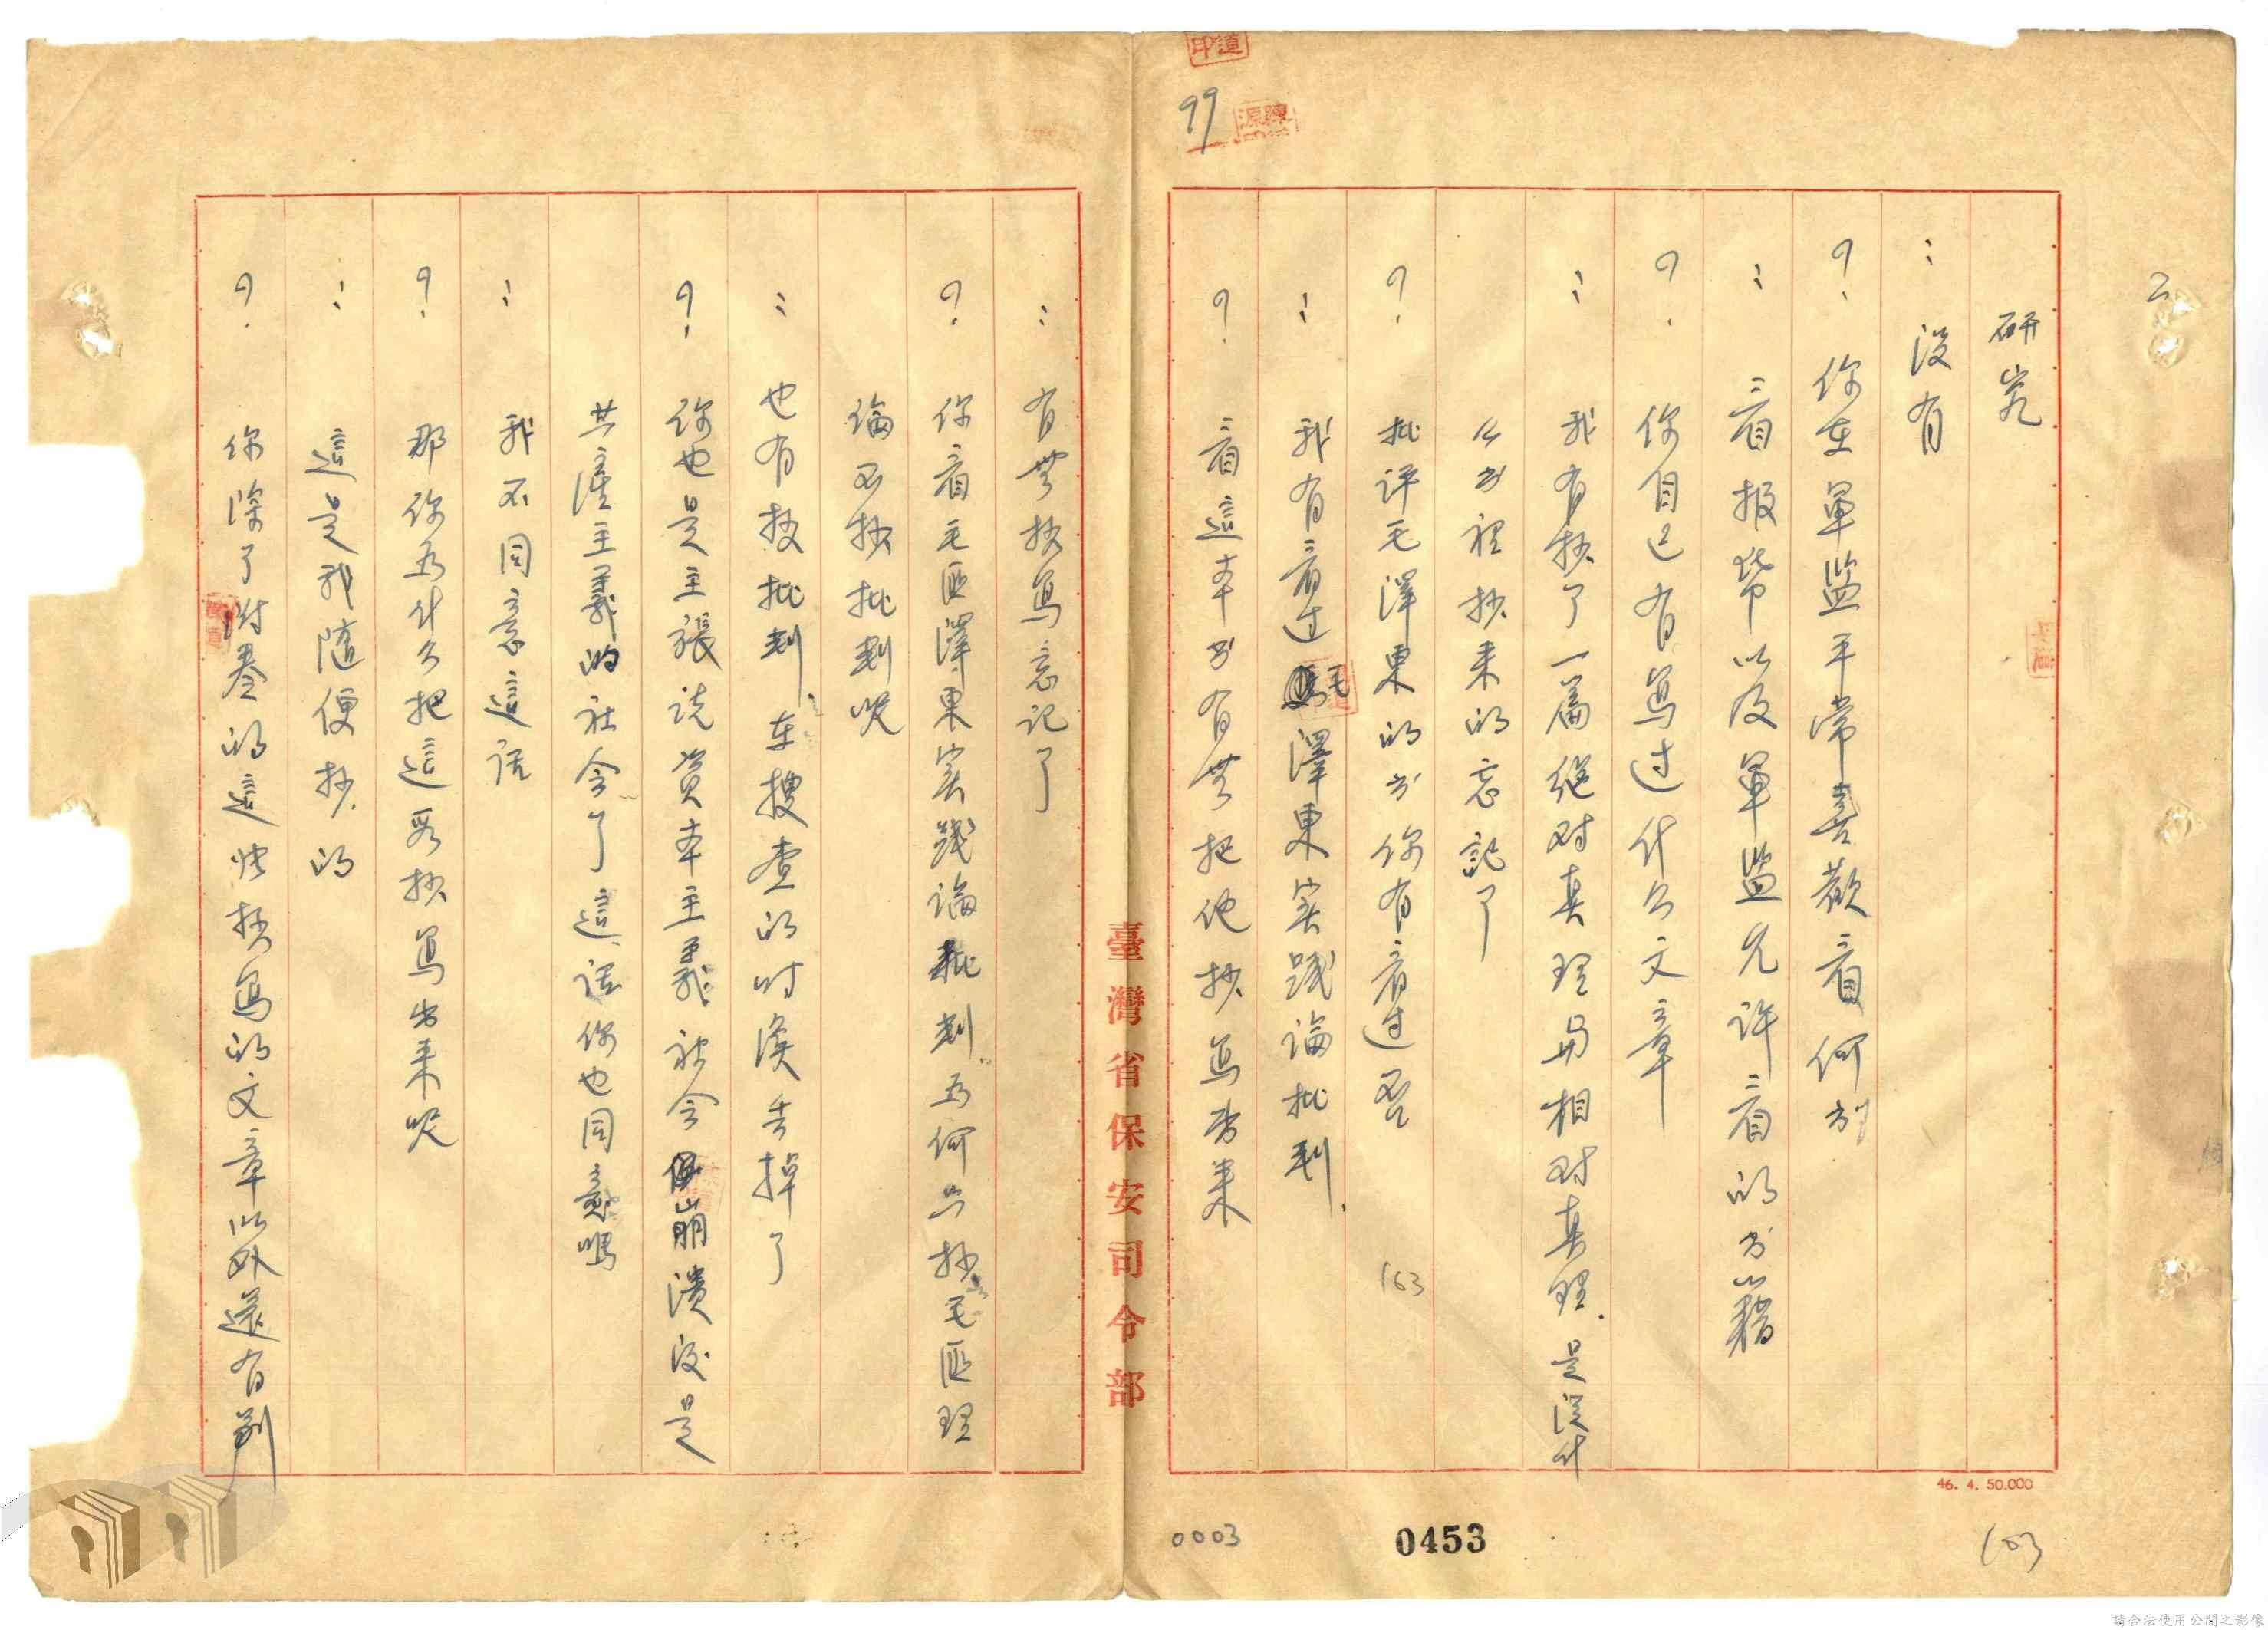 研究
：没有
？你在軍監平常喜歡看何书
：看报帋以及軍監允許看的书籍
？你自己有写过什么文章
：我有抄了一篇绝对真理与相对真理．是從什
么书裡抄来的忘記了
？批评毛澤東的书你有看过否
：我有看过毛澤東实践論批判．
？看這本书有無把他抄写出来
：有無抄写忘記了
？你看毛匪澤東实践論批判為何只抄毛匪理
論不抄批判呢
：也有抄批判．在搜查的时候丢掉了
？你也是主張说資本主義社会崩潰後是
共產主義的社会了這话你也同意嗎
：我不同意這话
？那你為什么把這段抄写出来呢
：這是我隨便抄的
？你除了附卷的這些抄写的文章以外還有別
臺灣省保安司令部
46. 4. 50.000
99
163
0003
0453
103
請合法使用公開之影像